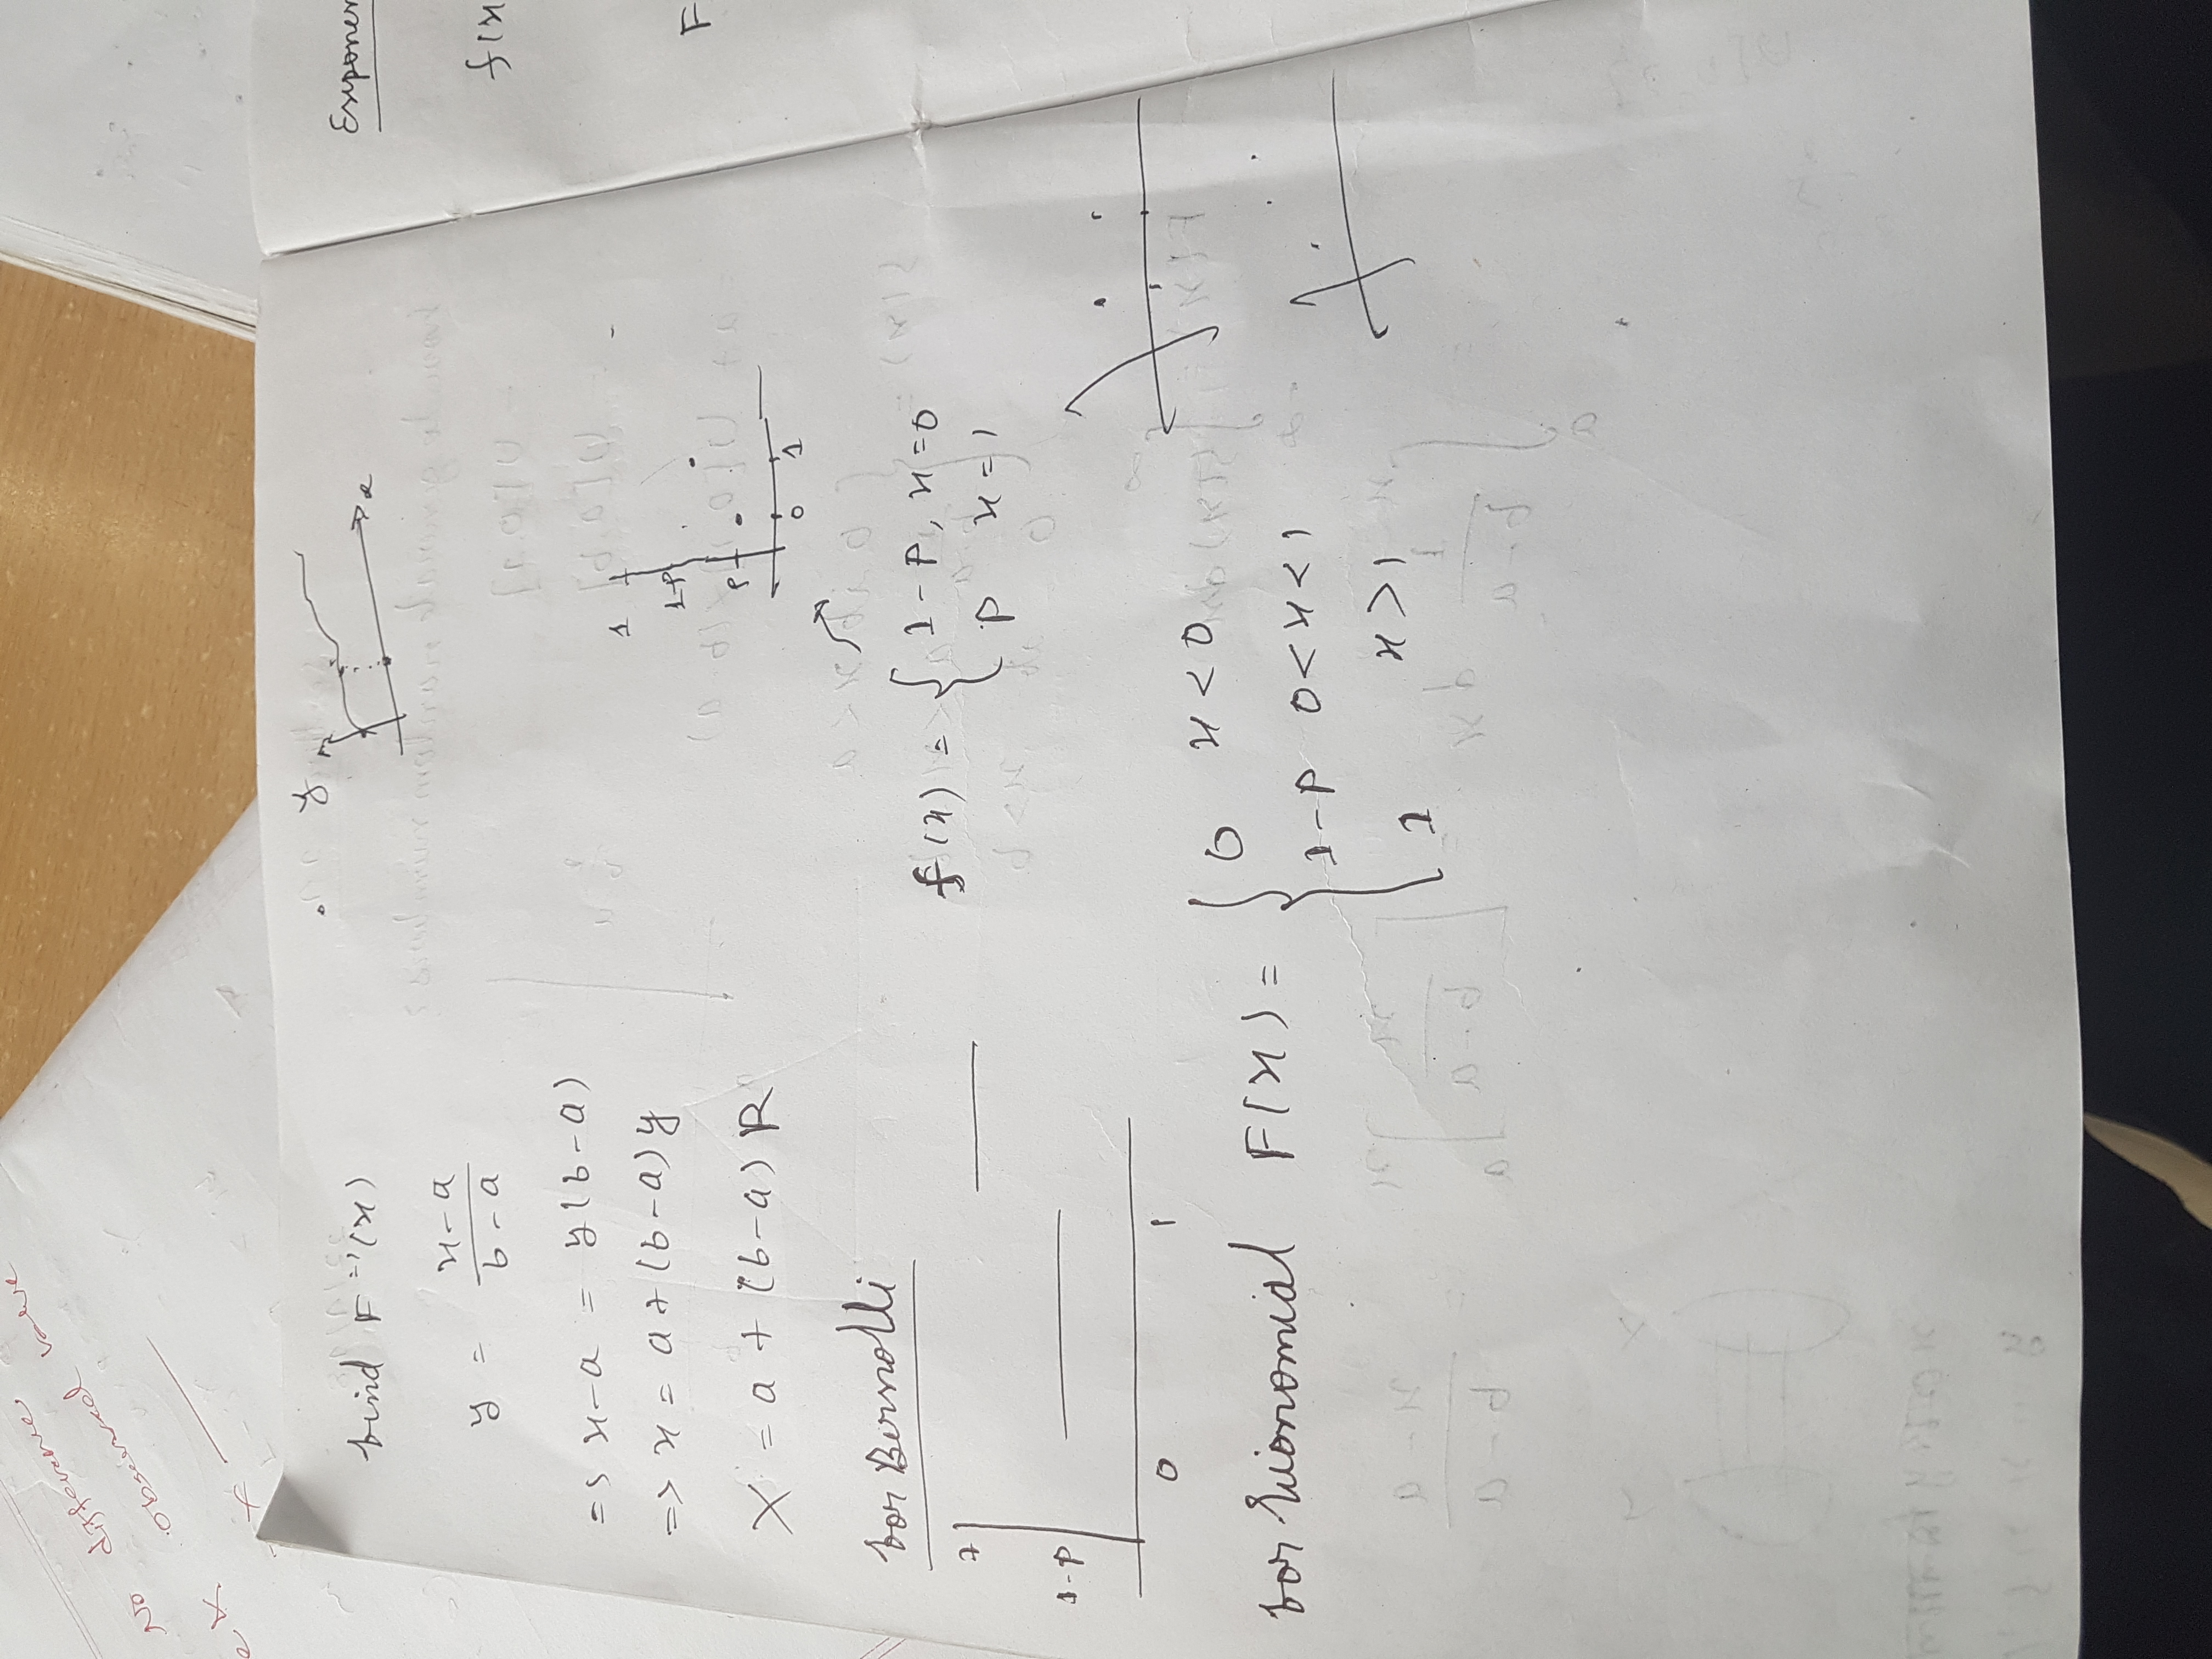 No difference
observed value
x
find F⁻¹(x)
y = x-a / b-a
=> x-a = y(b-a)
=> x = a + (b-a) y
X = a + (b-a) R
y
x
1
1-P
P
0 1
for Bernolli
1
1-P
0 1
f(x) = { 1-P, x=0
P x=1
for Binomial F(x) = { 0 x<0
1-P 0<x<1
1 x>1
Exponen
f(x
F